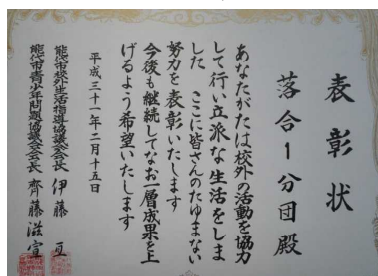 表彰状
落合1分団殿
あなたがたは校外の活動を協力
して行い立派な生活をしま
した ここに皆さんのたゆまない
努力を表彰いたします
今後も継続してなお一層成果を上
げるよう希望いたします
平成三十一年二月十五日
能代市校外生活指導協議会会長 伊藤 亘
能代市青少年問題協議会会長 齊藤滋宣